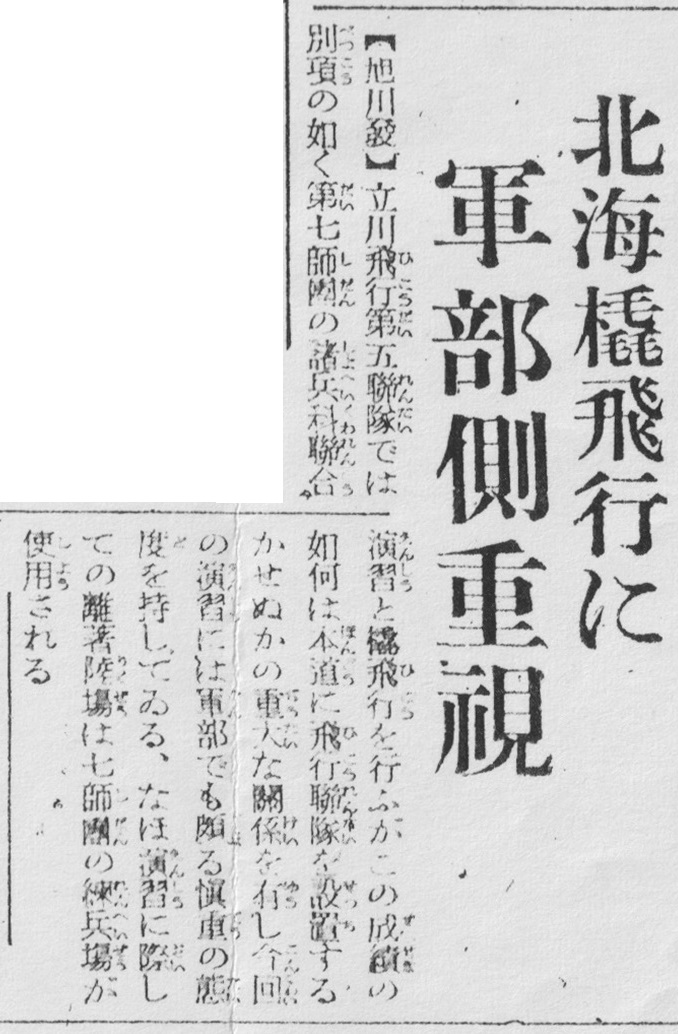 北海橇飛行に
軍部側重視
【旭川發】立川飛行第五聯隊では
別項の如く第七師團の諸兵科聯合
演習と橇飛行を行ふがこの成績の
如何は本道に飛行聯隊を設置する
かせぬかの重大な關係を有し今回
の演習には軍部でも頗る愼重の態
度を持してゐる、なほ演習に際し
ての離著陸場は七師團の練兵場が
使用される